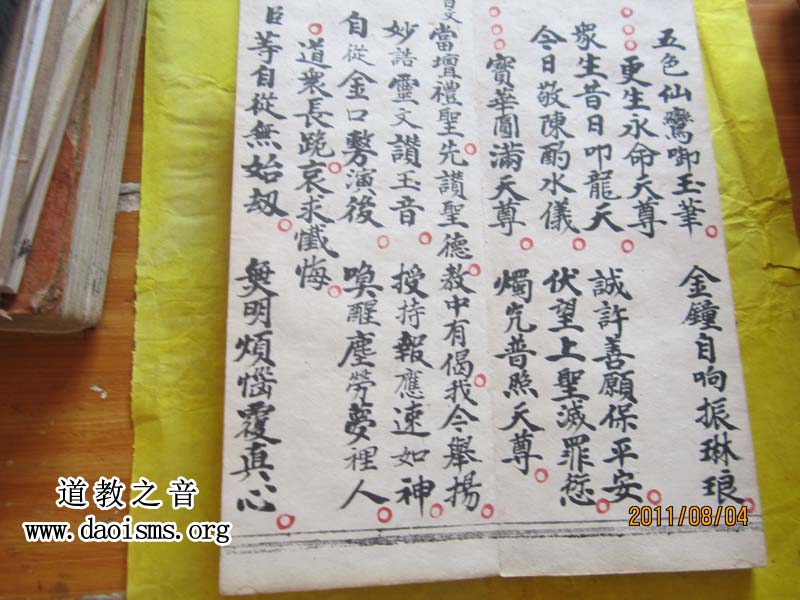 五色仙鸞啣玉華 金鐘自响振琳琅
更生永命天尊
眾生昔日叩龍天 誠許善願保平安
今日敬陳酌水儀 伏望上聖滅罪愆
寶華圓滿天尊 燭光普照天尊
白文 當壇禮聖先讚聖德 教中有偈我今舉揚
妙誥靈文讚玉音 授持報應速如神
自從金口敷演後 喚醒塵勞夢裡人
道衆長跪哀求懺悔
臣等自從無始刼 無明煩惱覆真心
道教之音
www.daoisms.org
2011/08/04